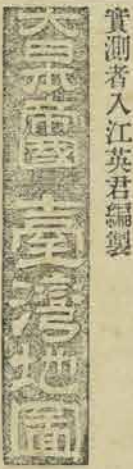 實測者入江英君編製
大日本帝國臺灣地圖